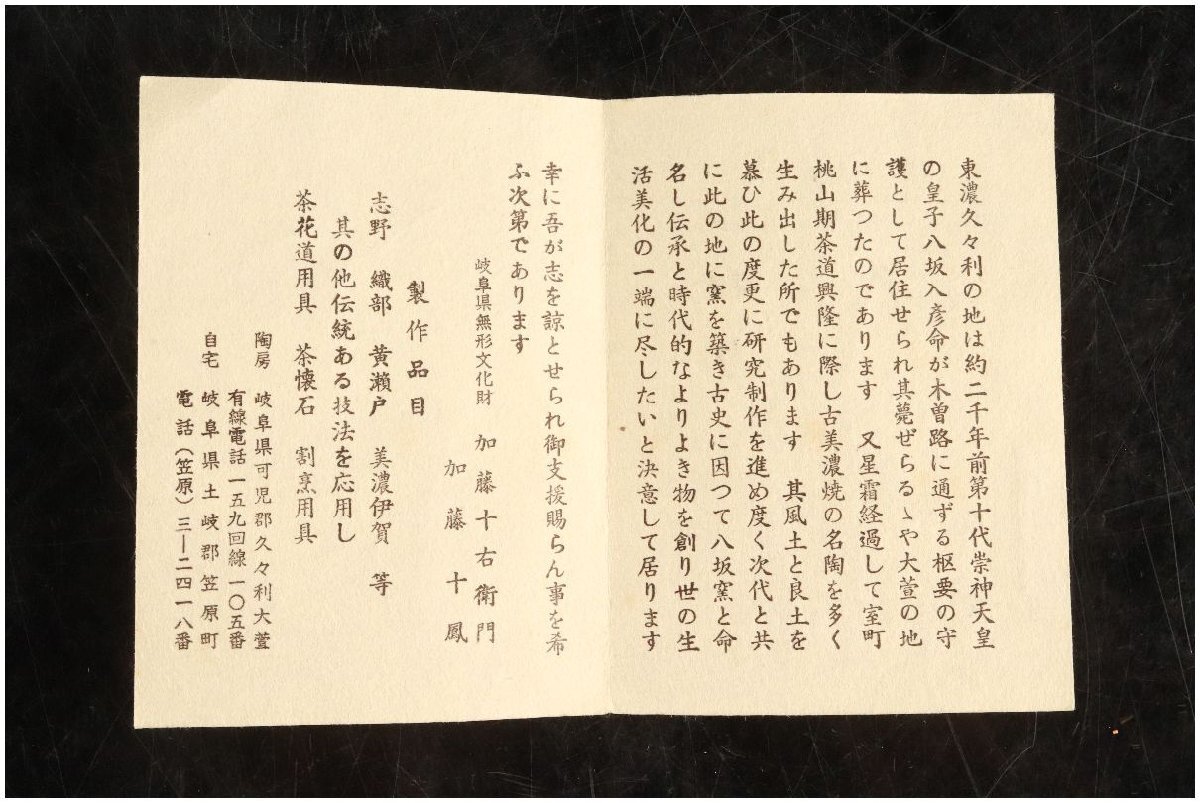 東濃久々利の地は約二千年前第十代崇神天皇
の皇子八坂入彦命が木曽路に通ずる枢要の守
護として居住せられ其薨ぜらるゝや大萱の地
に葬つたのであります 又星霜経過して室町
桃山期茶道興隆に際し古美濃焼の名陶を多く
生み出した所でもあります 其風土と良土を
慕ひ此の度更に研究制作を進め度く次代と共
に此の地に窯を築き古史に因つて八坂窯と命
名し伝承と時代的なよりよき物を創り世の生
活美化の一端に尽したいと決意して居ります
幸に吾が志を諒とせられ御支援賜らん事を希
ふ次第であります
岐阜県無形文化財 加藤十右衛門
加藤十鳳
製作品目
志野 織部 黄瀬戸 美濃伊賀 等
其の他伝統ある技法を応用し
茶花道用具 茶懐石 割烹用具
陶房 岐阜県可児郡久々利大萱
有線電話一五九回線一〇五番
自宅 岐阜県土岐郡笠原町
電話(笠原)三―二四一八番